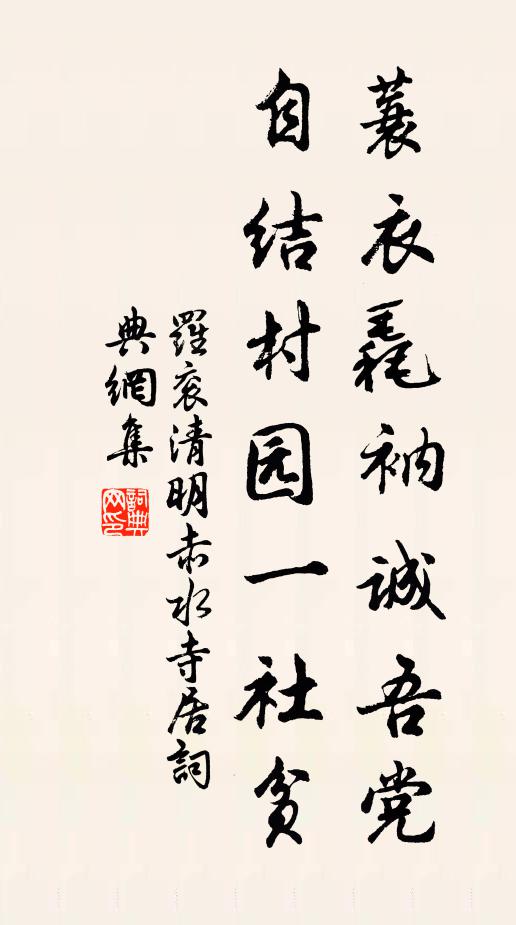 蓑衣毳衲诚吾党
自结村园一社贫
羅衮清明赤水寺居詞
典網集
詞典网印